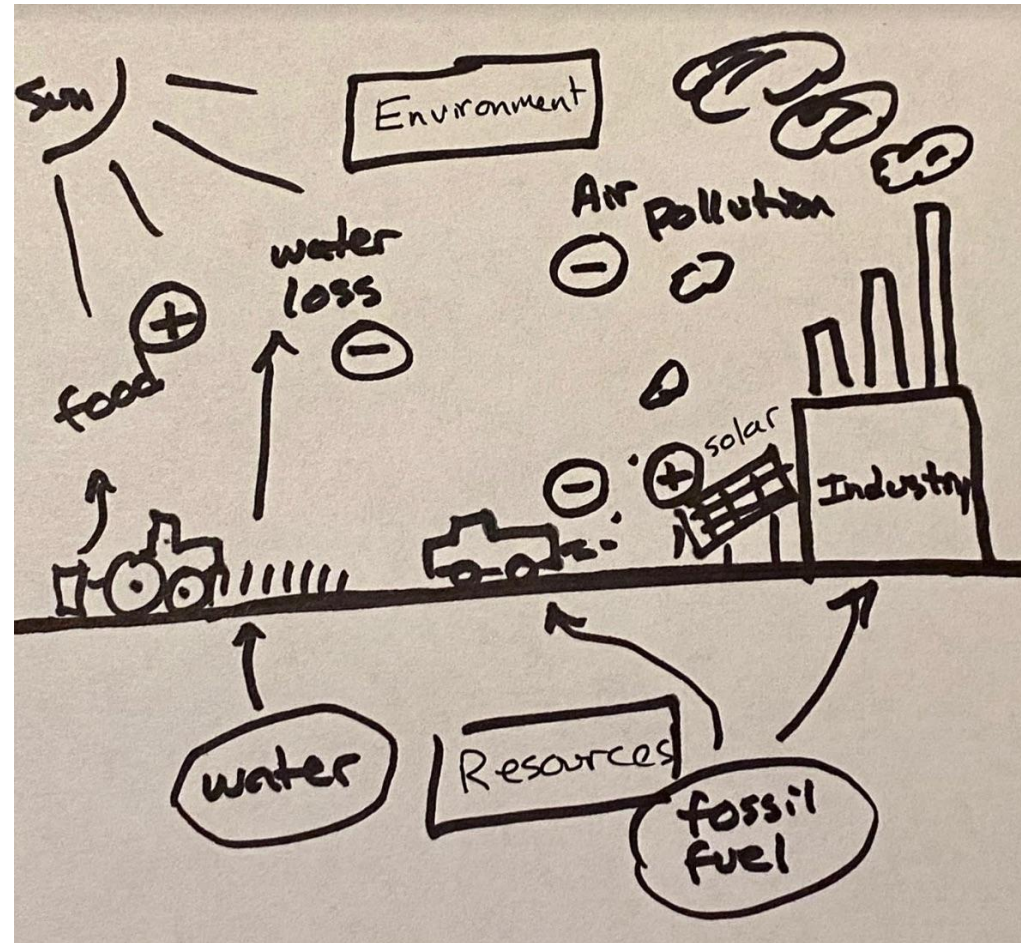 Sun
Environment
Air Pollution
water
loss
−
−
+
food
solar
+
−
Industry
water
Resources
fossil
fuel